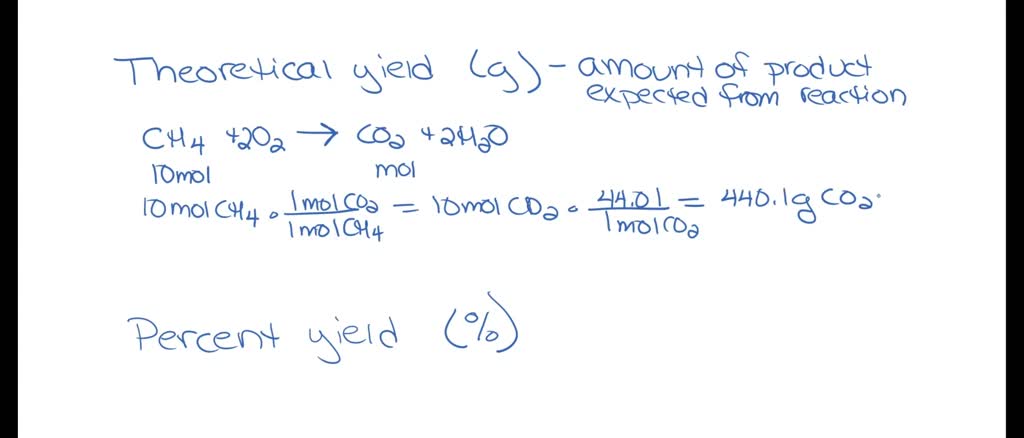 Theoretical yield (g) - amount of product
expected from reaction
CH4 + 2O2 → CO2 + 2H2O
10mol mol
10molCH4 • 1molCO2 / 1molCH4 = 10molCO2 • 44.01 / 1molCO2 = 440.1g CO2
Percent yield (%)